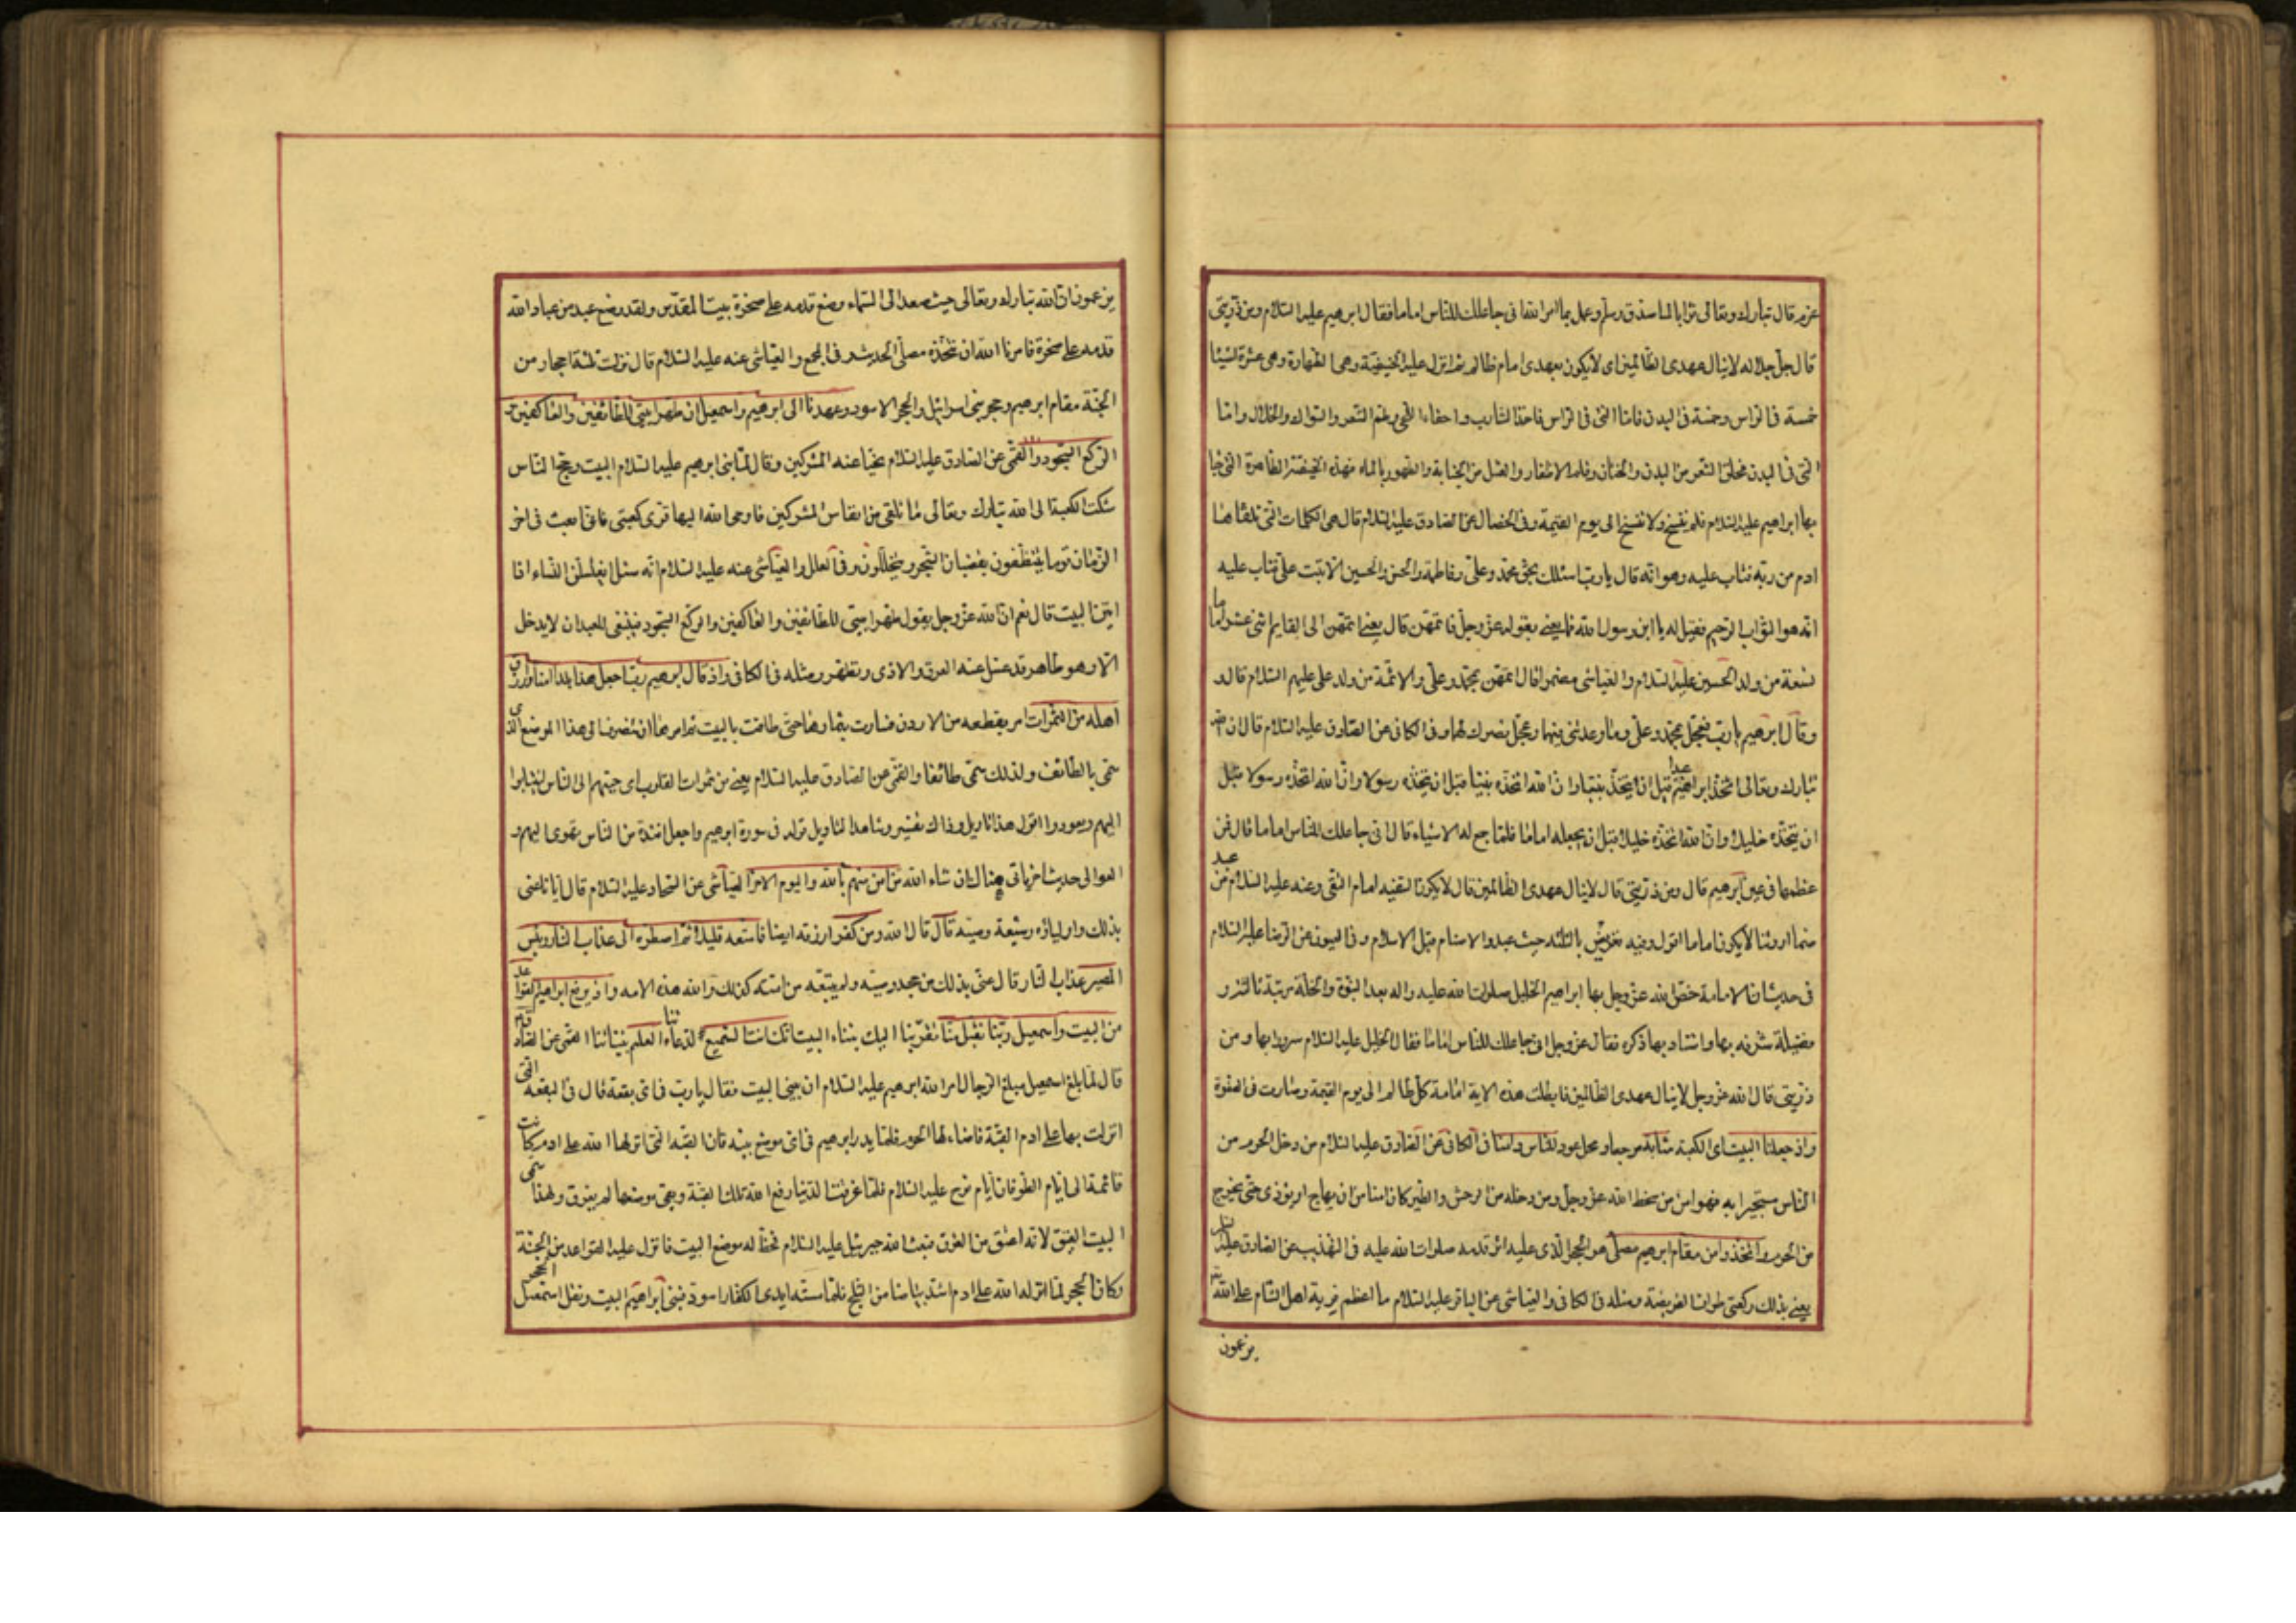 عزم قال تبارك وتعالى ثوابا لما صدق وسلم وعمل بما امر الله انى جاعلك للناس اماما فقال ابرهيم عليه السلام ومن ذريتى
قال جل جلاله لا ينال عهدى الظالمين اى لا يكون بعهدى امام ظالم ثم انزل عليه الحنيفية وهى الطهارة وهى عشرة اشياء
خمسة فى الراس وخمسة فى البدن فاما التى فى الراس فاخذ الشارب واعفاء اللحى وطم الشعر والسواك والخلال واما
التى فى البدن فحلق الشعر من البدن والختان وقلم الاظفار والغسل من الجنابة والطهور بالماء فهذه الحنيفية الظاهرة التى جاء
بها ابراهيم عليه السلام فلم تنسخ ولا تنسخ الى يوم القيمة وفى الخصال عن الصادق عليه السلام قال هى الكلمات التى تلقاها
ادم من ربه فتاب عليه وهو انه قال يا رب اسئلك بحق محمد وعلى وفاطمة والحسن والحسين الا تبت على فتاب عليه
انه هو التواب الرحيم فقيل له يا ابن رسول الله فما يعنى بقوله عز وجل فاتمهن قال يعنى اتمهن الى القايم اثنى عشر اماما
تسعة من ولد الحسين عليه السلام والعياشى مضمرا قال اتمهن بمحمد وعلى والائمة من ولد على عليهم السلام قال
وقال ابرهيم يا رب فعجل بمحمد وعلى وما وعدتنى فيهما وعجل بنصرك لهما وفى الكافى عن الصادق عليه السلام قال ان الله
تبارك وتعالى اتخذ ابراهيم عبدا قبل ان يتخذه نبيا وان الله اتخذه نبيا قبل ان يتخذه رسولا وان الله اتخذه رسولا قبل
ان يتخذه خليلا وان الله اتخذه خليلا قبل ان يجعله اماما فلما جمع له الاشياء قال انى جاعلك للناس اماما قال فمن
عظمها فى عين ابرهيم قال ومن ذريتى قال لا ينال عهدى الظالمين قال لا يكون السفيه امام التقى وعنه عليه السلام من عبد
صنما او وثنا لا يكون اماما اقول وفيه تعريض بالثلثة حيث عبدوا الاصنام قبل الاسلام وفى العيون عن الرضا عليه السلام
فى حديث ان الامامة خص الله عز وجل بها ابراهيم الخليل صلوات الله عليه واله بعد النبوة والخلة مرتبة ثالثة و
فضيلة شرفه بها واشاد بها ذكره فقال عز وجل انى جاعلك للناس اماما فقال الخليل عليه السلام سرورا بها ومن
ذريتى قال الله عز وجل لا ينال عهدى الظالمين فابطلت هذه الاية امامة كل ظالم الى يوم القيمة وصارت فى الصفوة
واذ جعلنا البيت اى الكعبة مثابة مرجعا ومحل عود للناس وامنا فى الكافى عن الصادق عليه السلام من دخل الحرم من
الناس مستجيرا به فهو امن من سخط الله عز وجل ومن دخله من الوحش والطير كان امنا من ان يهاج او يؤذى حتى يخرج
من الحرم واتخذوا من مقام ابرهيم مصلى هو الحجر الذى عليه اثر قدمه صلوات الله عليه فى التهذيب عن الصادق عليه السلام
يعنى بذلك ركعتى طواف الفريضة ومثله فى الكافى والعياشى عن الباقر عليه السلام ما اعظم فرية اهل الشام على الله
يزعمون
يزعمون ان الله تبارك وتعالى حيث صعد الى السماء وضع قدمه على صخرة بيت المقدس ولقد وضع عبد من عباد الله
قدمه على صخرة فامرنا الله ان نتخذه مصلى الحديث وفى المجمع والعياشى عنه عليه السلام قال نزلت ثلثة احجار من
الجنة مقام ابرهيم وحجر بنى اسرائيل والحجر الاسود وعهدنا الى ابرهيم واسمعيل ان طهرا بيتى للطائفين والعاكفين و
الركع السجود القمى عن الصادق عليه السلام نحيا عنه المشركين وقال لما بنى ابرهيم عليه السلام البيت وحج الناس
شكت الكعبة الى الله تبارك وتعالى ما تلقى من انفاس المشركين فاوحى الله اليها قرى كعبتى فانى ابعث فى اخر
الزمان قوما يتنظفون بقضبان الشجر ويتخللون وفى العلل والعياشى عنه عليه السلام انه سئل ايغتسلن النساء اذا
اتين البيت قال نعم ان الله عز وجل يقول طهرا بيتى للطائفين والعاكفين والركع السجود فينبغى للعبد ان لا يدخل
الا وهو طاهر قد غسل عنه العرق والاذى وتطهر ومثله فى الكافى واذ قال ابرهيم رب اجعل هذا بلدا امنا وارزق
اهله من الثمرات امر بقطعه من الاردن فسارت بثمارها حتى طافت بالبيت ثم امرها ان تنصرف الى هذا الموضع الذى
سمى بالطائف ولذلك سمى طائفا والقمى عن الصادق عليه السلام يعنى من ثمرات القلوب اى حبهم الى الناس
اليهم ويعودوا اقول هذا تاويل وذاك تفسير وشاهد التاويل قوله فى سورة ابرهيم واجعل افئدة من الناس تهوى اليهم و
العوالى حديث اخر ياتى هناك ان شاء الله من امن منهم بالله واليوم الاخر العياشى عن السجاد عليه السلام قال ايانا عنى
بذلك واولياؤه وشيعة وصيه قال قال الله ومن كفر ارزقه ايضا فامتعه قليلا ثم اضطره الى عذاب النار وبئس
المصير عذاب النار قال عنى بذلك من جحد وصيه ولم يتبعه من امته كذلك والله هذه الامه واذ يرفع ابراهيم القواعد
من البيت واسمعيل ربنا تقبل منا تقربنا اليك ببناء البيت انك انت السميع لدعائنا العليم بنياتنا القمى عن الصادق
قال لما بلغ اسمعيل مبلغ الرجال امر الله ابرهيم عليه السلام ان يبنى البيت فقال يا رب فى اى بقعة قال فى البقعة التى
انزلت بها على ادم القبة فاضاء لها الحرم فلم يدر ابرهيم فى اى موضع يبنيه فان القبة التى انزلها الله على ادم كانت
قائمة الى ايام الطوفان ايام نوح عليه السلام فلما غرقت الدنيا رفع الله تلك القبة وبقى موضعها لم يغرق ولهذا سمى
البيت العتيق لانه اعتق من الغرق فبعث الله جبرئيل عليه السلام فخط له موضع البيت فانزل عليه القواعد من الجنة
وكان الحجر لما انزله الله على ادم اشد بياضا من الثلج فلما مسته ايدى الكفار اسود فبنى ابراهيم البيت ونقل اسمعيل الحجر